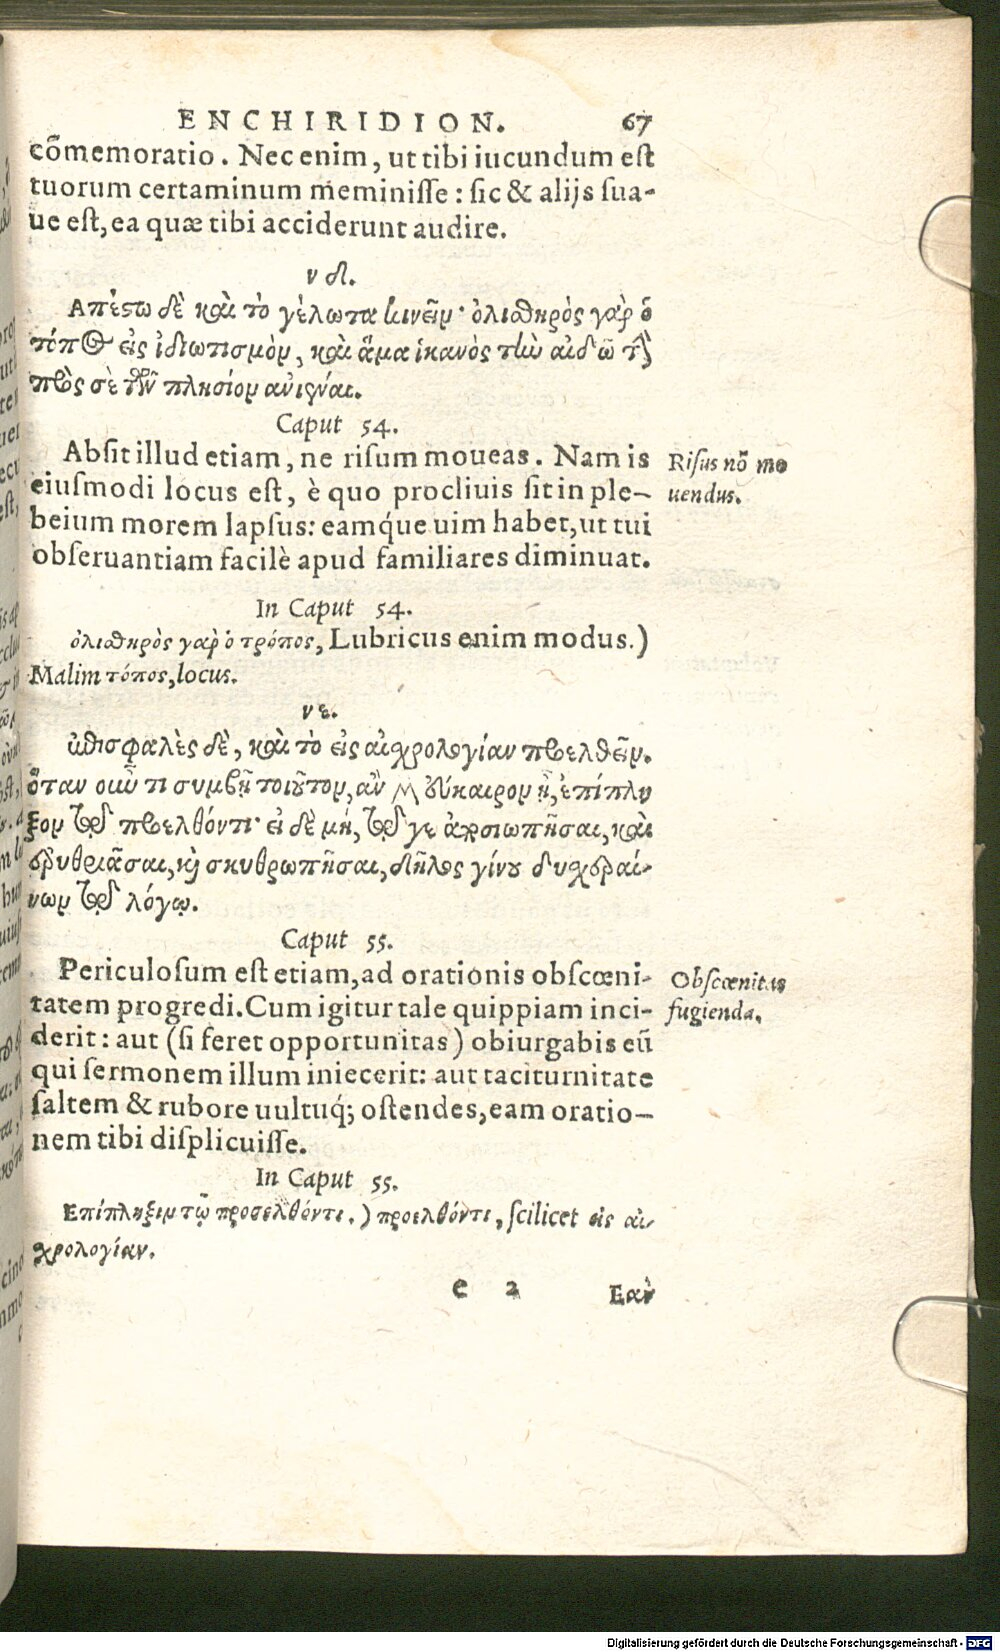 ENCHIRIDION. 67
cōmemoratio. Nec enim, ut tibi iucundum est
tuorum certaminum meminisse: sic & alijs sua-
ue est, ea quæ tibi acciderunt audire.
νδ.
Απέστω δὲ καὶ τὸ γέλωτα κινεῖν· ὀλισθηρὸς γὰρ ὁ
τόπος εἰς ἰδιωτισμὸν, καὶ ἅμα ἱκανὸς τὴν αἰδῶ τὴν
πρὸς σὲ τῶν πλησίον ἀνιέναι.
Caput 54.
Absit illud etiam, ne risum moueas. Nam is
eiusmodi locus est, è quo procliuis sit in ple-
beium morem lapsus: eamq́ue uim habet, ut tui
obseruantiam facilè apud familiares diminuat.
Risus nō mo
uendus.
In Caput 54.
ὀλισθηρὸς γὰρ ὁ τρόπος, Lubricus enim modus.)
Malim τόπος, locus.
νε.
ἐπισφαλὲς δὲ, καὶ τὸ εἰς αἰσχρολογίαν προελθεῖν.
ὅταν οὖν τι συμβῇ τοιοῦτον, ἂν μὲν εὔκαιρον ᾖ, ἐπίπλη
ξον τῷ προελθόντι· εἰ δὲ μή, τῷ γε ἀποσιωπῆσαι, καὶ
ἐρυθριᾶσαι, καὶ σκυθρωπῆσαι, δῆλος γίνου δυσχεραί-
νων τῷ λόγῳ.
Caput 55.
Periculosum est etiam, ad orationis obscœni-
tatem progredi. Cum igitur tale quippiam inci-
derit: aut (si feret opportunitas) obiurgabis eū
qui sermonem illum iniecerit: aut taciturnitate
saltem & rubore uultuq́; ostendes, eam oratio-
nem tibi displicuisse.
Obscœnitas
fugienda.
In Caput 55.
Επίπληξιν τῷ προσελθόντι.) προελθόντι, scilicet εἰς αἰ-
χρολογίαν.
e 2 Εαν
Digitalisierung gefördert durch die Deutsche Forschungsgemeinschaft - DFG